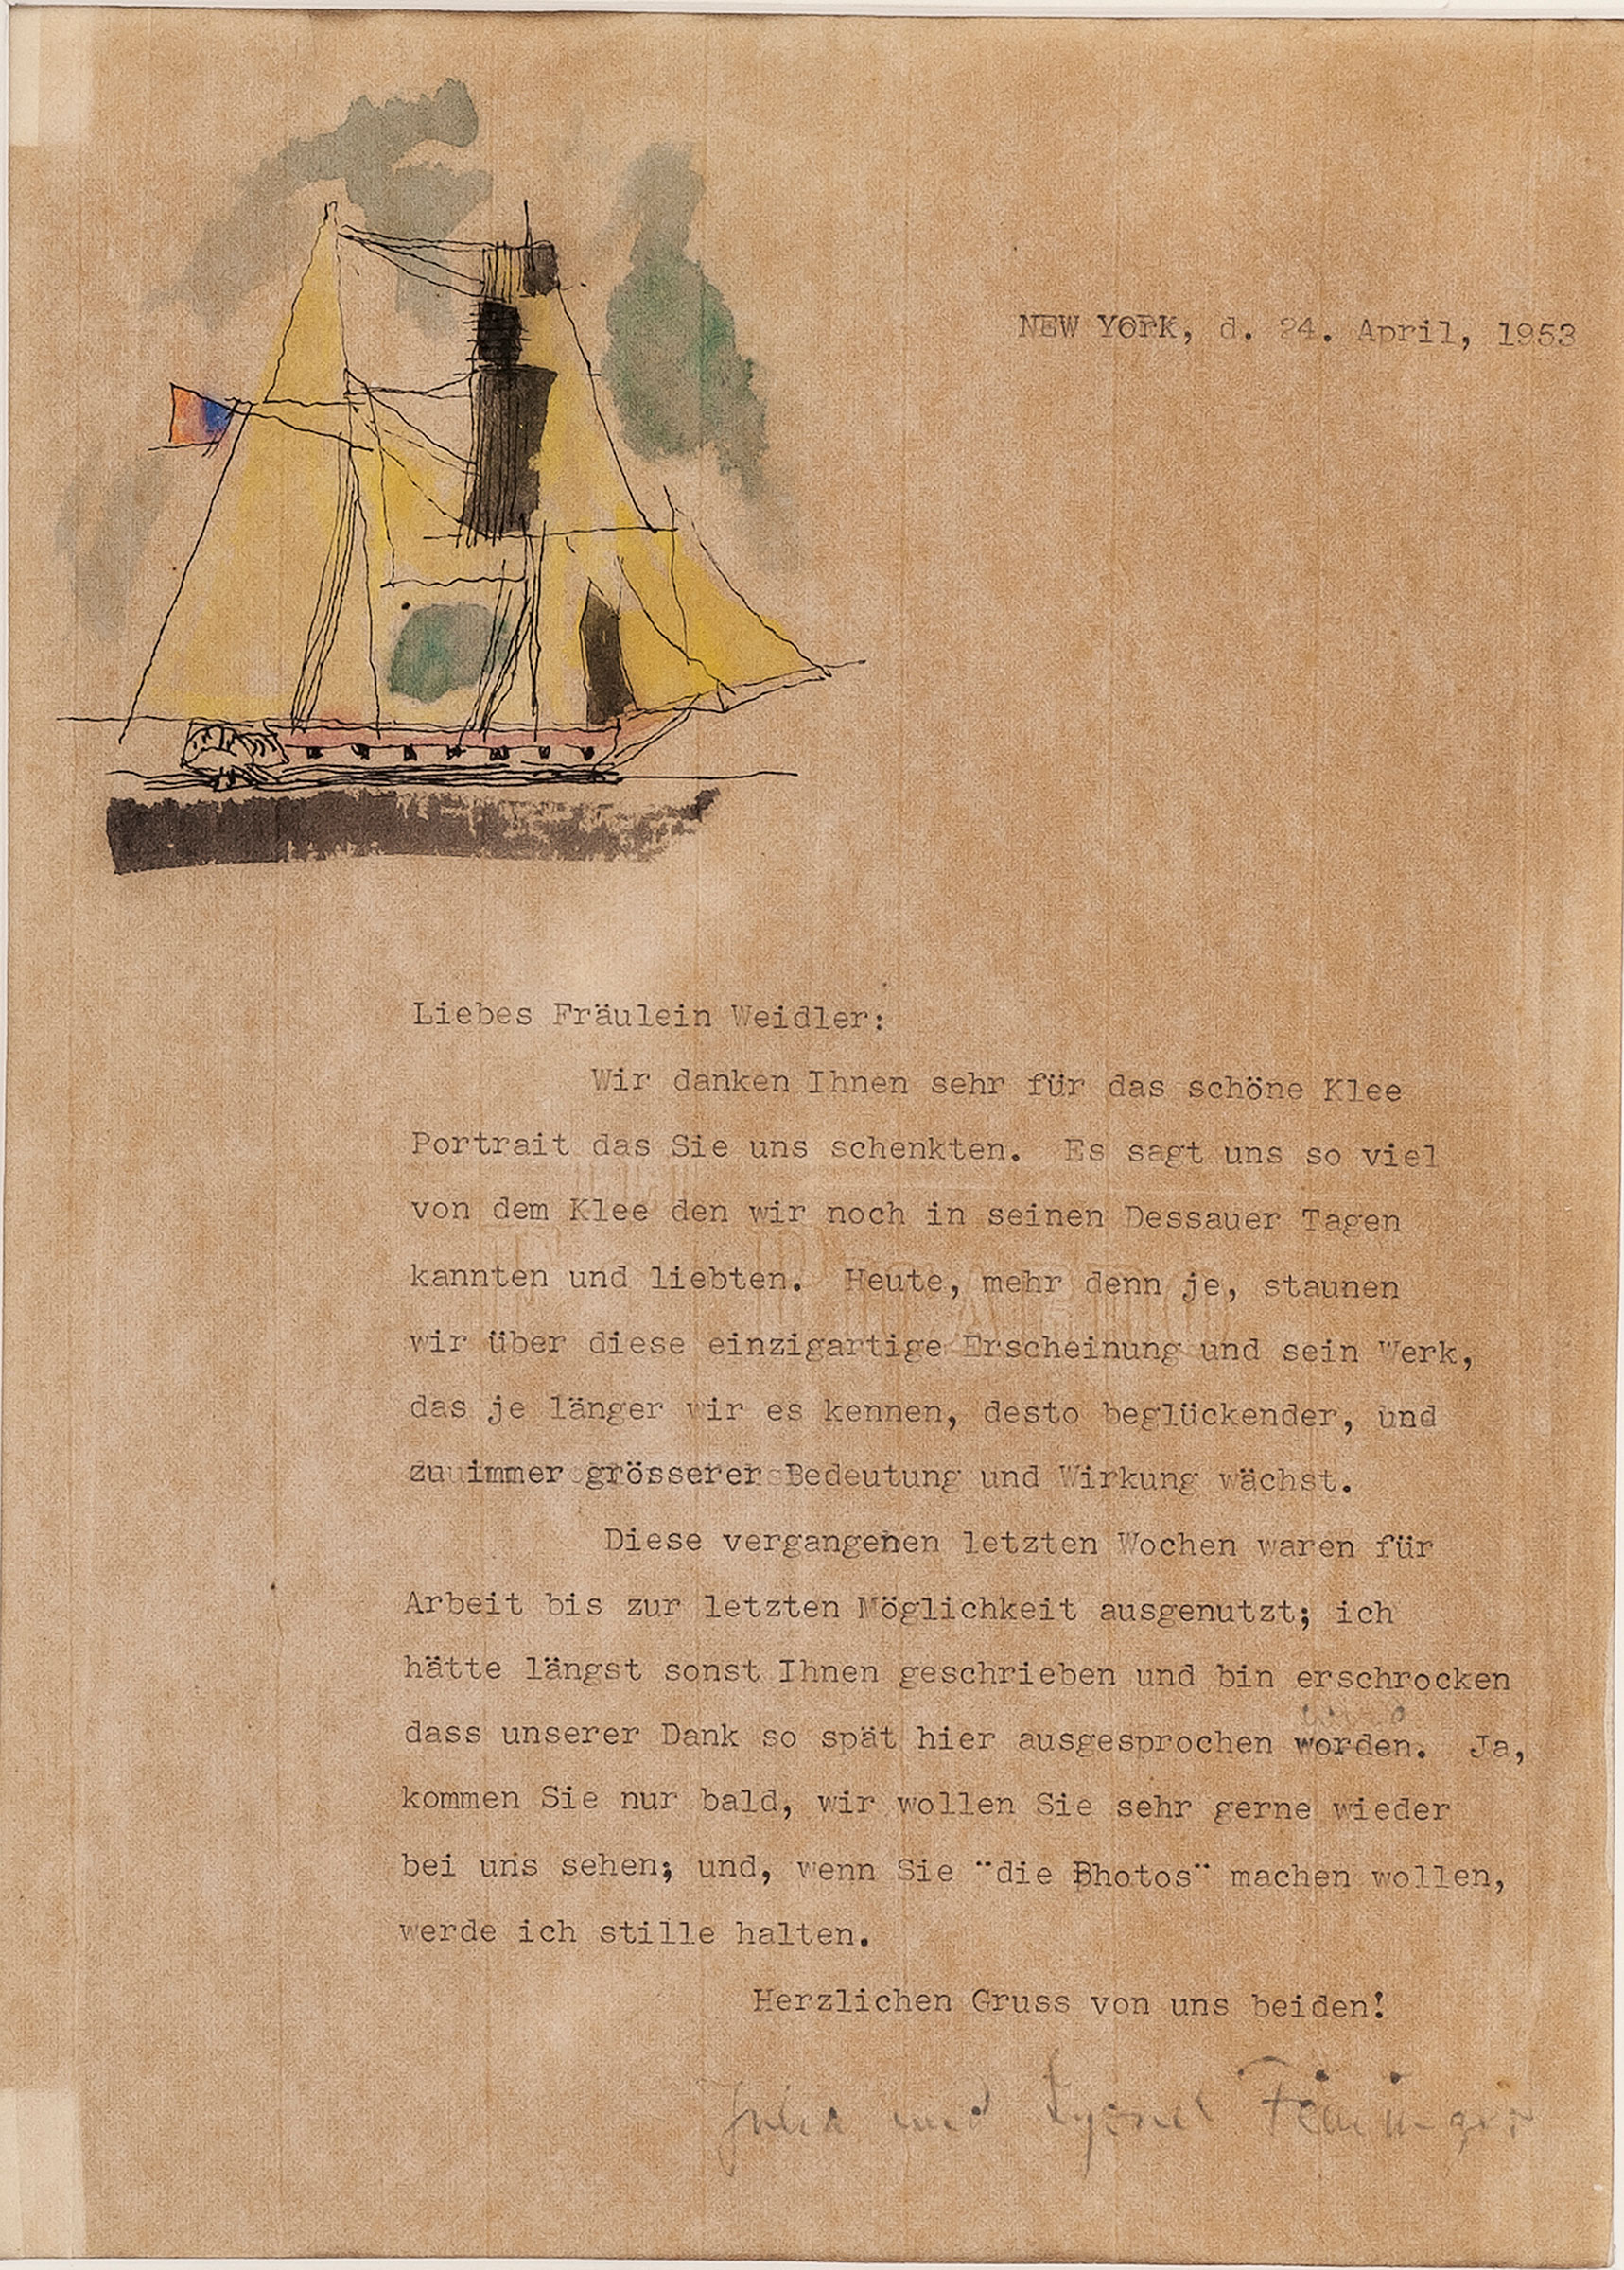 NEW YORK, d. 24. April, 1953
Liebes Fräulein Weidler:
Wir danken Ihnen sehr für das schöne Klee
Portrait das Sie uns schenkten. Es sagt uns so viel
von dem Klee den wir noch in seinen Dessauer Tagen
kannten und liebten. Heute, mehr denn je, staunen
wir über diese einzigartige Erscheinung und sein Werk,
das je länger wir es kennen, desto beglückender, und
zu immer grösserer Bedeutung und Wirkung wächst.
Diese vergangenen letzten Wochen waren für
Arbeit bis zur letzten Möglichkeit ausgenutzt; ich
hätte längst sonst Ihnen geschrieben und bin erschrocken
wird
dass unserer Dank so spät hier ausgesprochen worden. Ja,
kommen Sie nur bald, wir wollen Sie sehr gerne wieder
bei uns sehen; und, wenn Sie "die Photos" machen wollen,
werde ich stille halten.
Herzlichen Gruss von uns beiden!
Julia und Lyonel Feininger